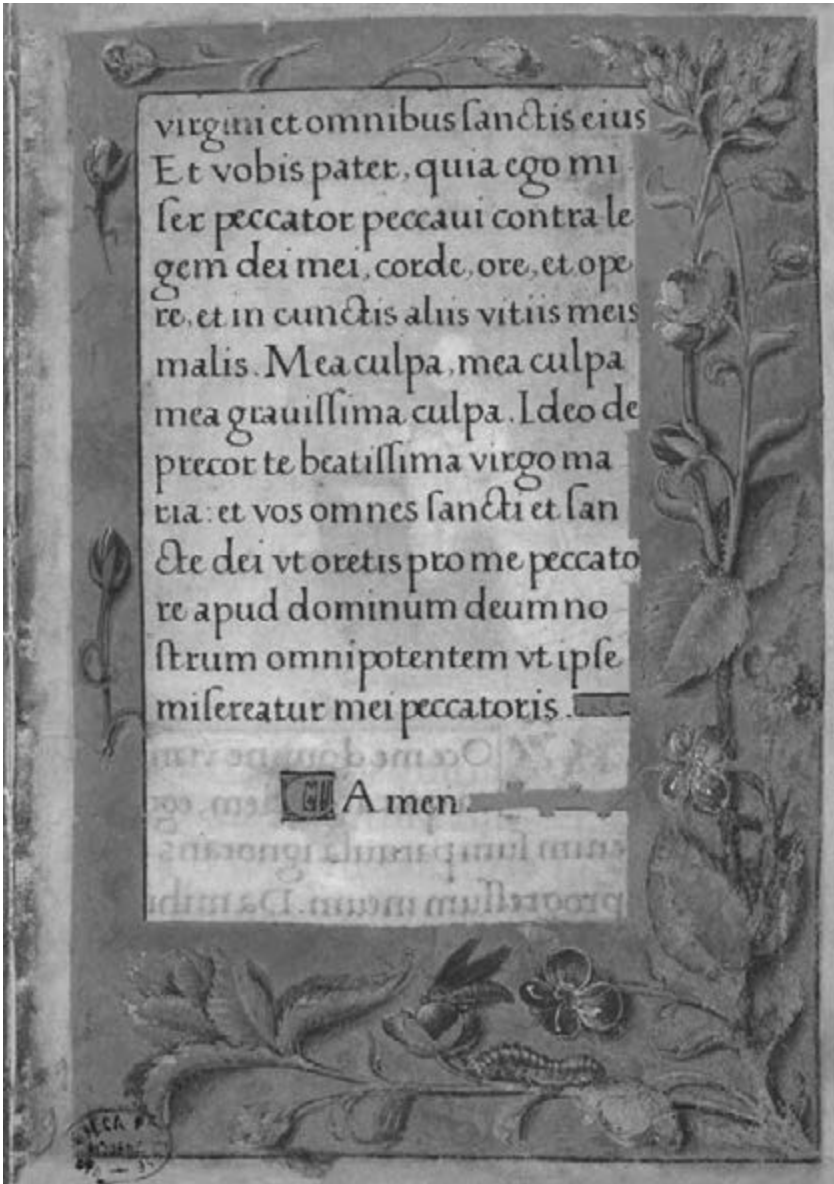 virgini et omnibus ſanctis eius
Et vobis pater, quia ego mi
ſer peccator peccaui contra le
gem dei mei, corde, ore, et ope
re, et in cunctis aliis vitiis meis
malis. Mea culpa, mea culpa
mea grauiſſima culpa. Ideo de
precor te beatiſſima virgo ma
ria: et vos omnes ſancti et ſan
cte dei vt oretis pro me peccato
re apud dominum deum no
ſtrum omnipotentem vt ipſe
miſereatur mei peccatoris.
Amen